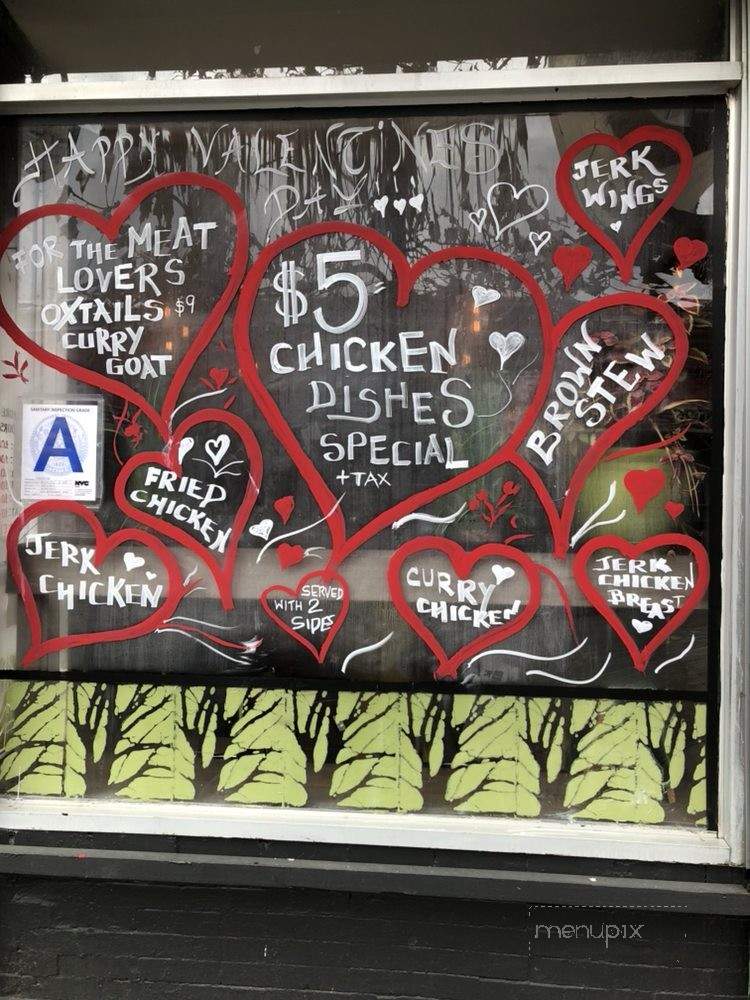 HAPPY VALENTINES
DAY
JERK
WINGS
FOR THE MEAT
LOVERS
OXTAILS $9
CURRY
GOAT
$5
CHICKEN
DISHES
SPECIAL
+TAX
BROWN
STEW
SANITARY INSPECTION GRADE
A
NYC
FRIED
CHICKEN
JERK
CHICKEN
SERVED
WITH 2
SIDES
CURRY
CHICKEN
JERK
CHICKEN
BREAST
menupix